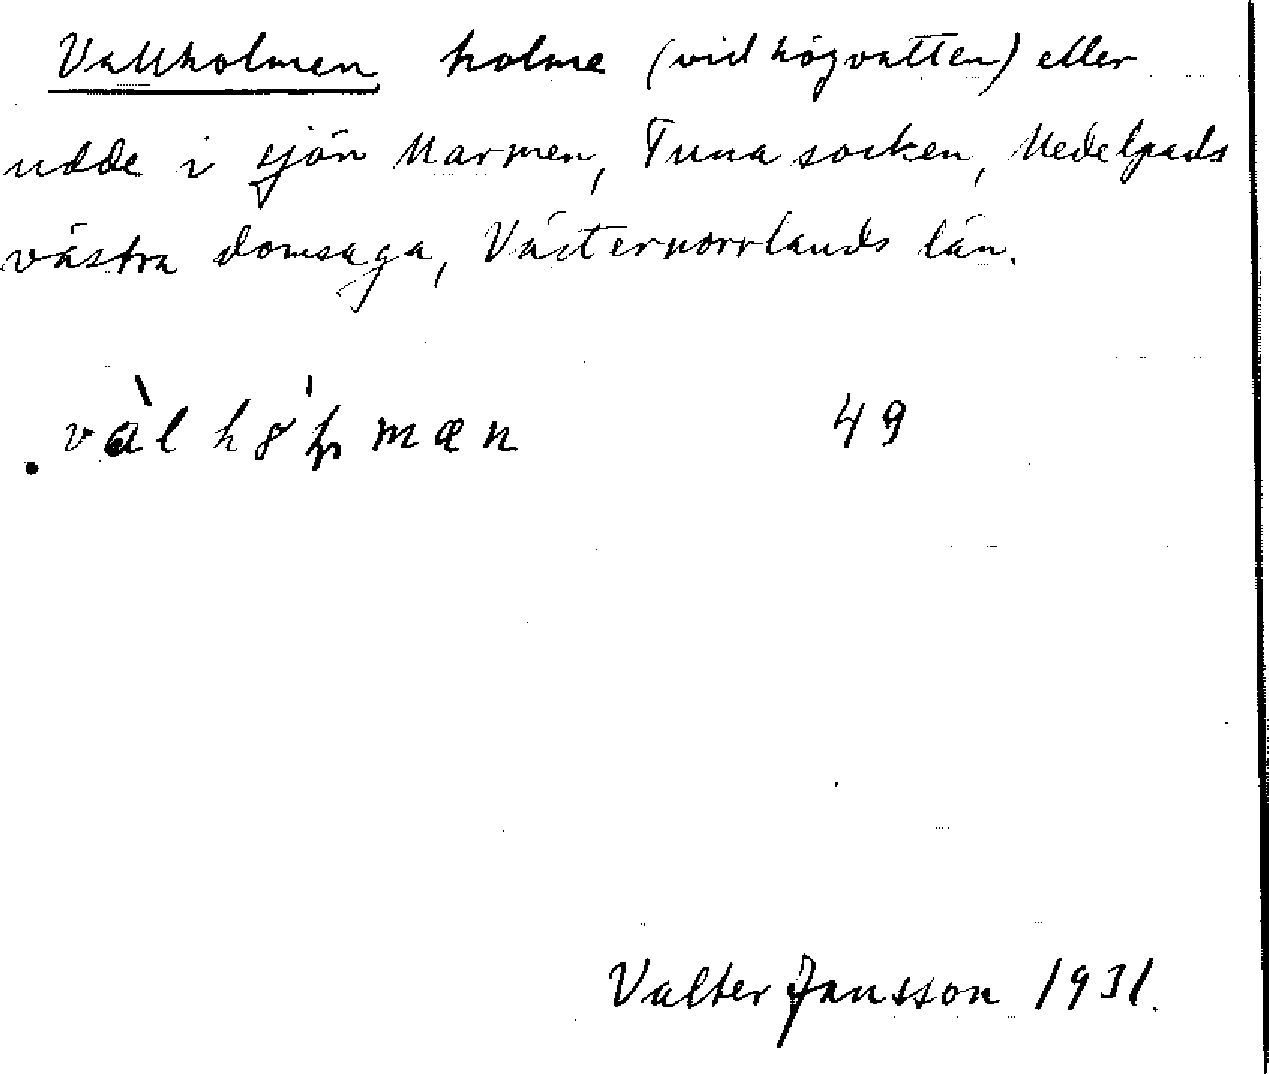 Vallholmen holme (vid högvatten) eller
udde i sjön Marmen, Tuna socken, Medelpads
västra domsaga, Västernorrlands län.
49
Valter Jansson 1931.